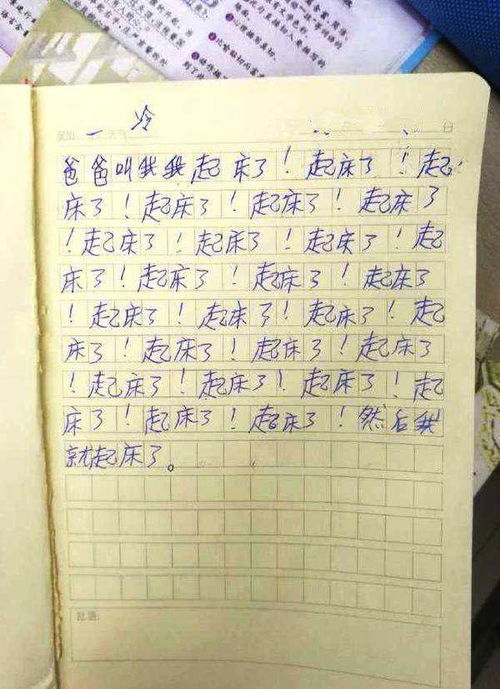 一 冷
爸爸叫我我起床了！起床了！起
床了！起床了！起床了！起床了
！起床了！起床了！起床了！起
床了！起床了！起床了！起床了
！起床了！起床了！起床了！起
床了！起床了！起床了！起床了
！起床了！起床了！起床了！起
床了！起床了！起床了！然后我
就起床了。
批语: